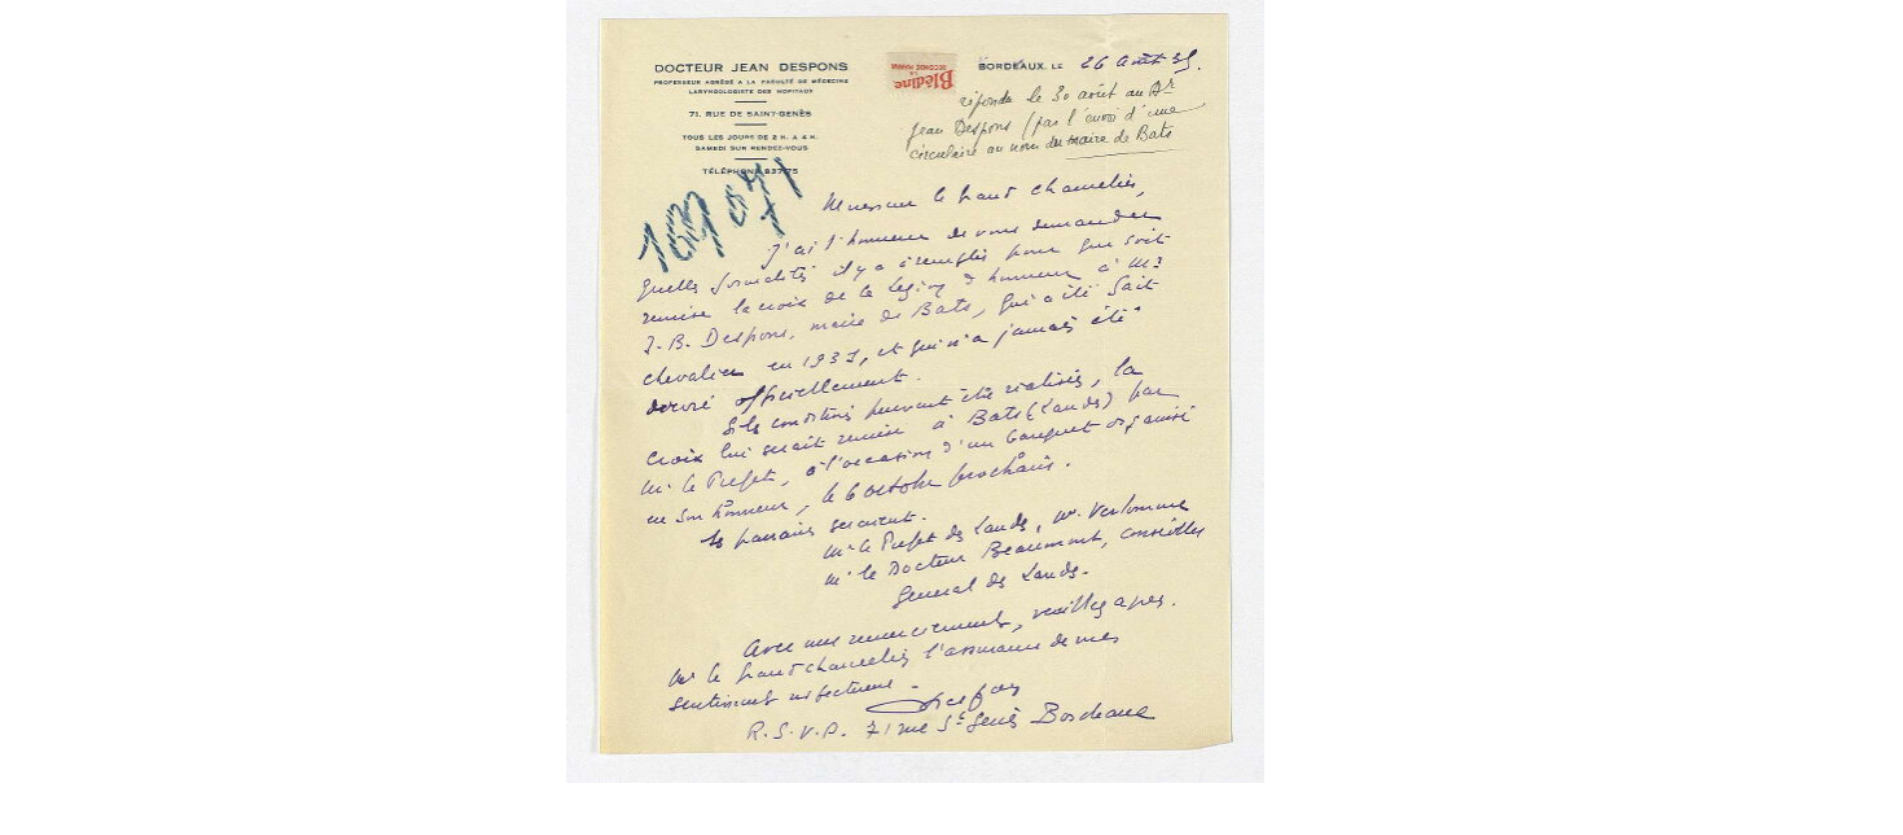 DOCTEUR JEAN DESPONS
PROFESSEUR AGRÉGÉ A LA FACULTÉ DE MÉDECINE
LARYNGOLOGISTE DES HOPITAUX
71. RUE DE SAINT-GENÈS
TOUS LES JOURS DE 2 H. A 4 H.
SAMEDI SUR RENDEZ-VOUS
TÉLÉPHONE 837-75
Blédine
LA
SECONDE MAMAN
BORDEAUX, LE 26 Août 35.
répondu le 30 août au Dr
Jean Despons (par l'envoi d'une
circulaire au nom du maire de Bats
Monsieur le grand chancelier,
J'ai l'honneur de vous demander
quelles formalités il y a à remplir pour que soit
remise la croix de la Légion d'honneur à Mr
J.-B. Despons, maire de Bats, qui a été fait
chevalier en 193, et qui n'a jamais été
décoré officiellement.
Si les conditions peuvent être réalisées, la
croix lui serait remise à Bats (Landes) par
Mr le Préfet, à l'occasion d'un banquet organisé
en son honneur, le 6 octobre prochain.
Les parrains seraient.
Mr le Préfet des Landes, Mr. Verlomme
Mr le Docteur Beaumont, conseiller
Général des Landes.
Avec mes remerciements, veuillez agréer.
Mr le grand chancelier l'assurance de mes
sentiments respectueux.
Despons
R.S.V.P. 71 rue St Genès Bordeaux